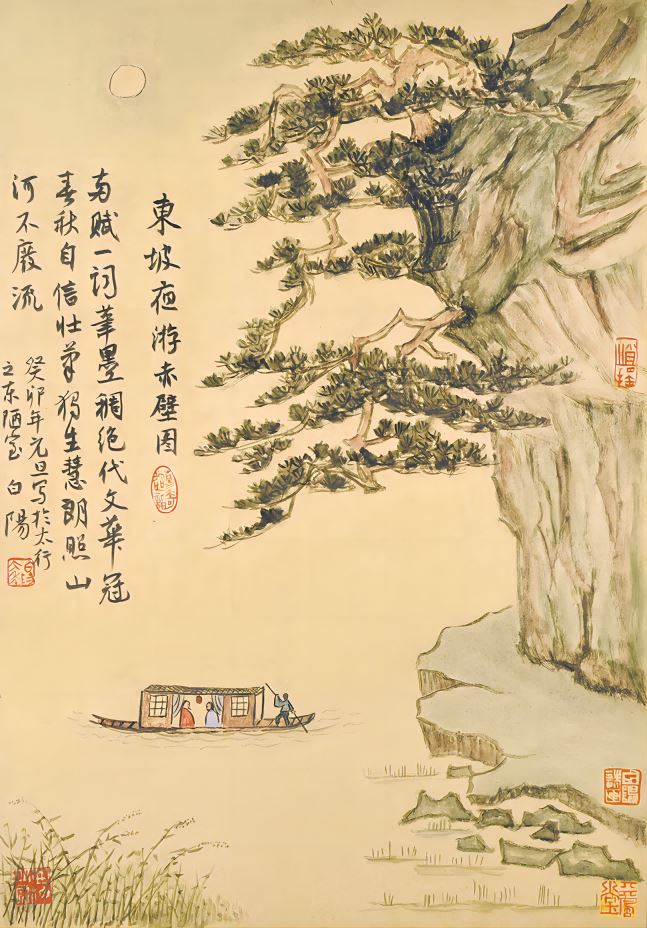 東坡夜游赤壁图
两赋一词筆墨稠绝代文華冠
春秋自信壮筆独生慧朗照山
河不廢流
癸卯年元旦写於太行
之东陋室 白陽